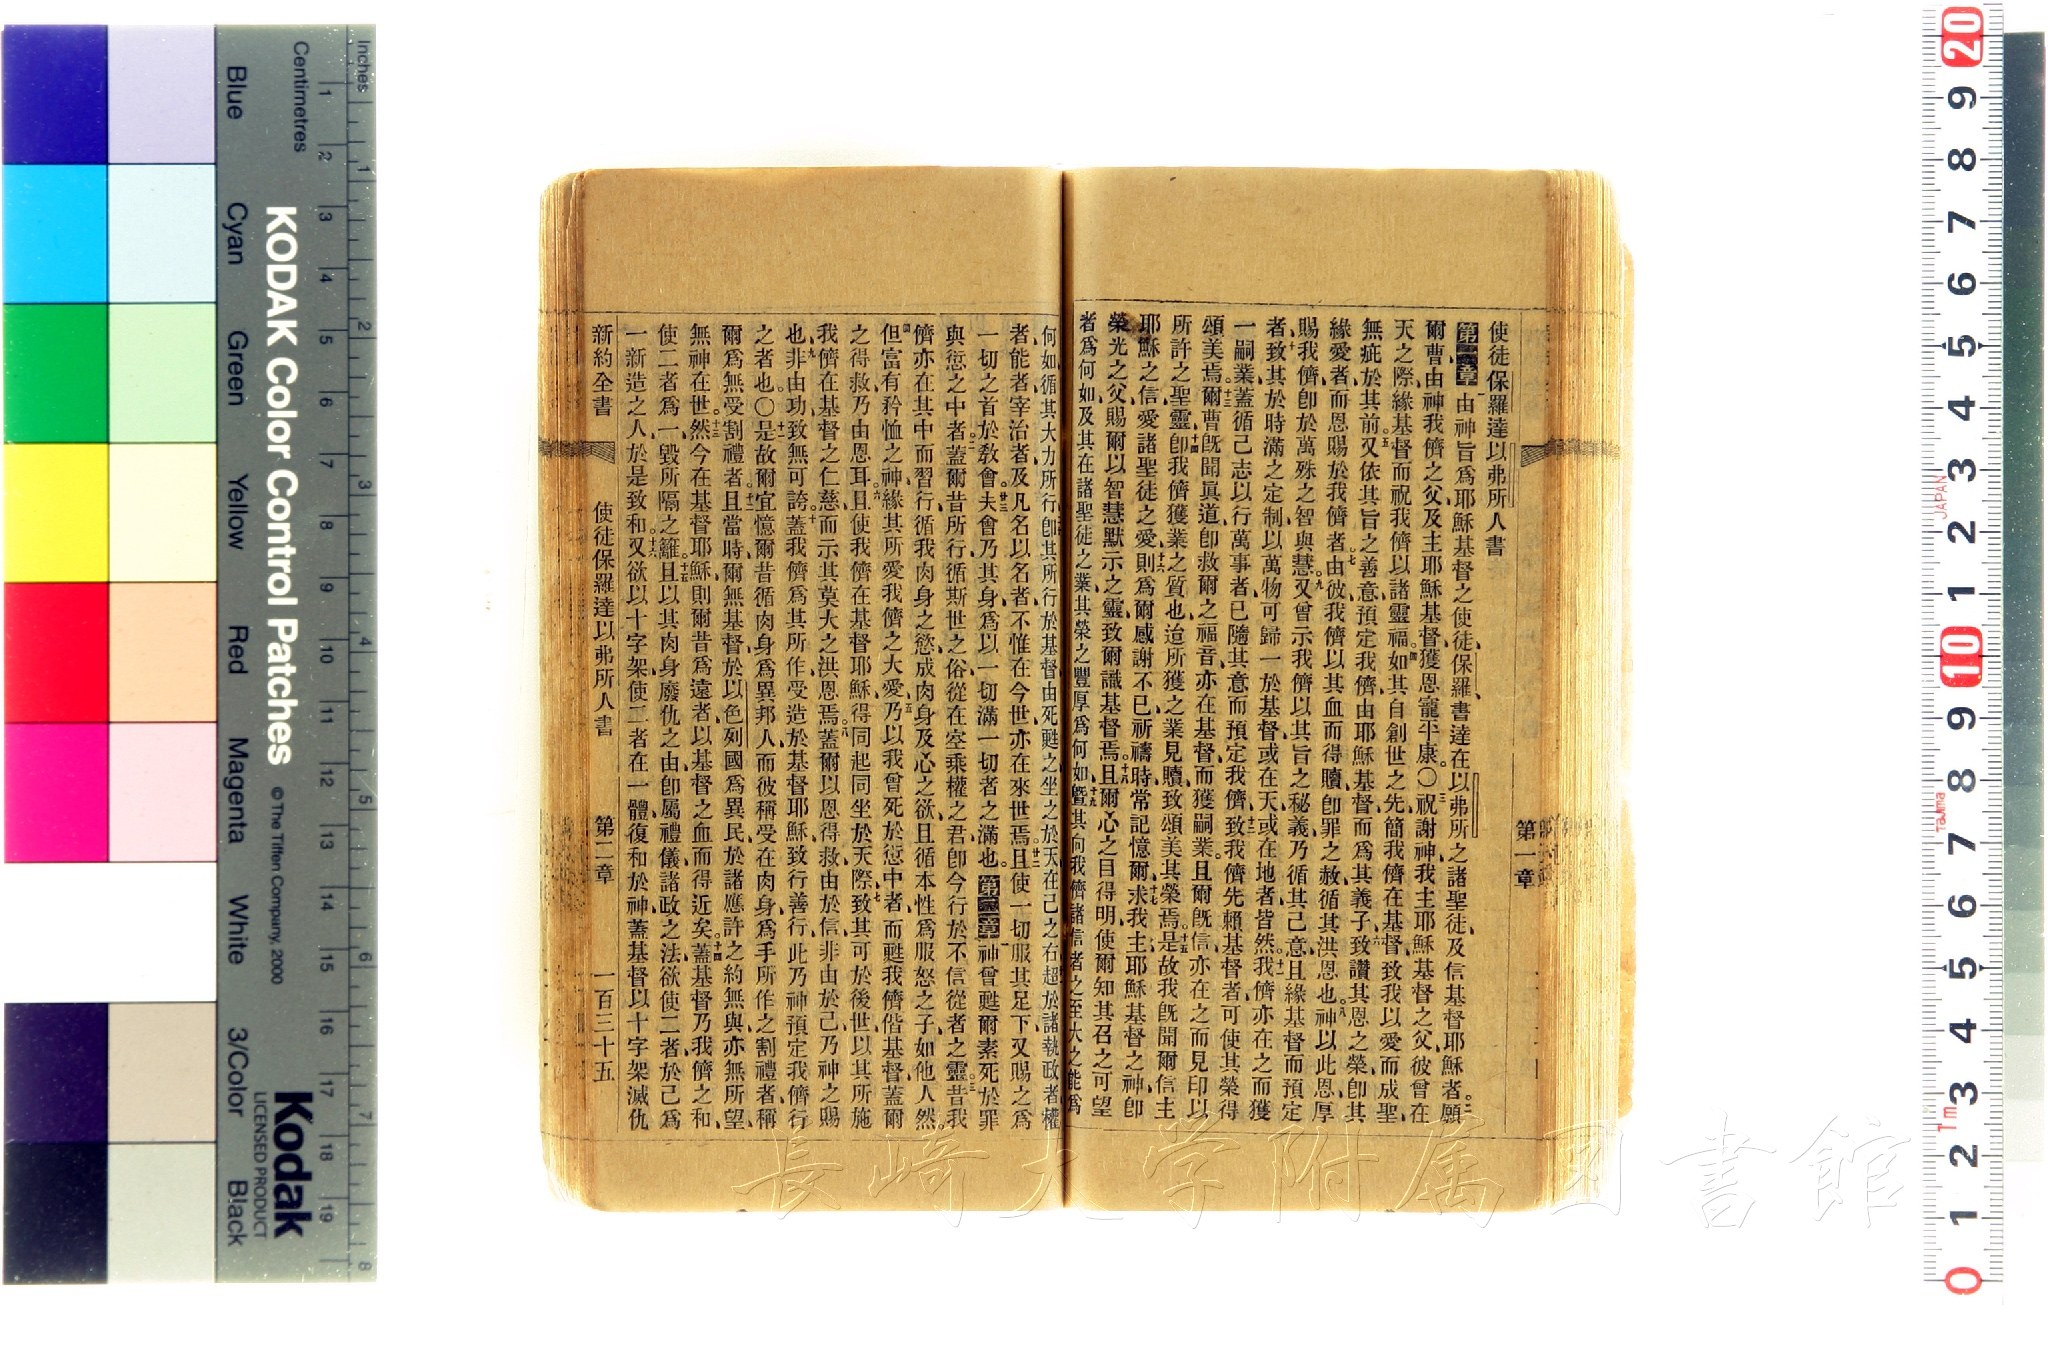 使徒保羅達以弗所人書
第一章 一由神旨爲耶穌基督之使徒保羅書達在以弗所之諸聖徒及信基督耶穌者二願
爾曹由神我儕之父及主耶穌基督獲恩寵平康〇三祝謝神我主耶穌基督之父彼曾在
天之際緣基督而祝我儕以諸靈福四如其自創世之先簡我儕在基督致我以愛而成聖
無疵於其前五又依其旨之善意預定我儕由耶穌基督而爲其義子六致讚其恩之榮卽其
緣愛者而恩賜於我儕者七由彼我儕以其血而得贖卽罪之赦循其洪恩也八神以此恩厚
賜我儕卽於萬殊之智與慧九又曾示我儕以其旨之秘義乃循其己意且緣基督而預定
者十致其於時滿之定制以萬物可歸一於基督或在天或在地者皆然十一我儕亦在之而獲
一嗣業蓋循己志以行萬事者已隨其意而預定我儕十二致我儕先賴基督者可使其榮得
頌美焉十三爾曹旣聞眞道卽救爾之福音亦在基督而獲嗣業且爾旣信亦在之而見印以
所許之聖靈十四卽我儕獲業之質也迨所獲之業見贖致頌美其榮焉十五是故我旣聞爾信主
耶穌之信愛諸聖徒之愛十六則爲爾感謝不已祈禱時常記憶爾十七求我主耶穌基督之神卽
榮光之父賜爾以智慧默示之靈致爾識基督焉十八且爾心之目得明使爾知其召之可望
者爲何如及其在諸聖徒之業其榮之豐厚爲何如十九曁其向我儕諸信者之至大之能爲
第一章
何如循其大力所行卽其所行於基督由死甦之坐之於天在己之右超於諸執政者權
者能者宰治者及凡名以名者不惟在今世亦在來世焉廿二且使一切服其足下又賜之爲
一切之首於敎會廿三夫會乃其身爲以一切滿一切者之滿也 第二章 一神曾甦爾素死於罪
與愆之中者二蓋爾昔所行循斯世之俗從在空乘權之君卽今行於不信從者之靈三昔我
儕亦在其中而習行循我肉身之慾成肉身及心之欲且循本性爲服怒之子如他人然
四但富有矜恤之神緣其所愛我儕之大愛五乃以我曾死於愆中者而甦我儕偕基督蓋爾
之得救乃由恩耳六且使我儕在基督耶穌得同起同坐於天際七致其可於後世以其所施
我儕在基督之仁慈而示其莫大之洪恩焉八蓋爾以恩得救由於信非由於己乃神之賜
也九非由功致無可誇十蓋我儕爲其所作受造於基督耶穌致行善行此乃神預定我儕行
之者也〇十一是故爾宜憶爾昔循肉身爲異邦人而彼稱受在肉身爲手所作之割禮者稱
爾爲無受割禮者十二且當時爾無基督於以色列國爲異民於諸應許之約無與亦無所望
無神在世十三然今在基督耶穌則爾昔爲遠者以基督之血而得近矣十四蓋基督乃我儕之和
使二者爲一毀所隔之籬十五且以其肉身廢仇之由卽屬禮儀諸政之法欲使二者於己爲
一新造之人於是致和十六又欲以十字架使二者在一體復和於神蓋基督以十字架滅仇
新約全書 使徒保羅達以弗所人書 第二章 一百三十五
長崎大学附属図書館
Inches
Centimetres
Blue Cyan Green Yellow Red Magenta White 3/Color Black
KODAK Color Control Patches © The Tiffen Company, 2000
Kodak
LICENSED PRODUCT
1 2 3 4 5 6 7 8 9 10 11 12 13 14 15 16 17 18 19
1 2 3 4 5 6 7 8
20 9 8 7 6 5 4 3 2 1 10 9 8 7 6 5 4 3 2 1 0
JAPAN
Tajima
1m